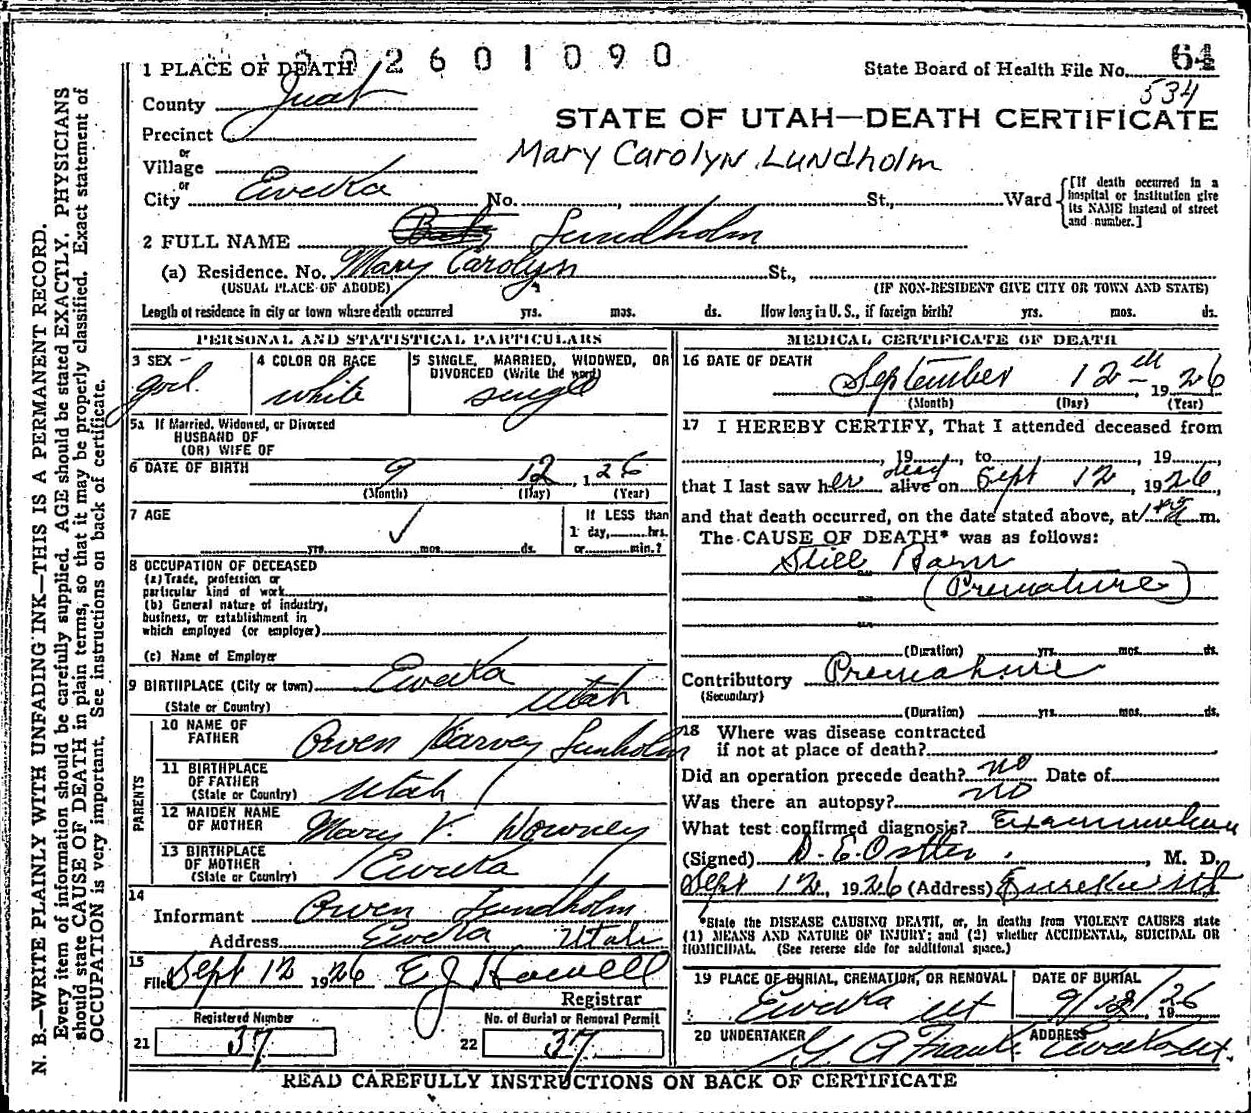 1 PLACE OF DEATH 2601090 64
State Board of Health File No. 534
County Juab
STATE OF UTAH—DEATH CERTIFICATE
Precinct
or
Mary Carolyn Lundholm
Village
or
City Eureka No. , St., Ward {[If death occurred in a hospital or institution give its NAME instead of street and number.]
2 FULL NAME Lundholm
(a) Residence. No. Mary Carolyn St.,
(USUAL PLACE OF ABODE) (IF NON-RESIDENT GIVE CITY OR TOWN AND STATE)
Length of residence in city or town where death occurred yrs. mos. ds. How long in U. S., if foreign birth? yrs. mos. ds.
PERSONAL AND STATISTICAL PARTICULARS
3 SEX - 4 COLOR OR RACE 5 SINGLE, MARRIED, WIDOWED, OR
DIVORCED (Write the word)
girl white single
5a If Married, Widowed, or Divorced
HUSBAND OF
(OR) WIFE OF
6 DATE OF BIRTH 9 12, 1 26
(Month) (Day) (Year)
7 AGE ✓ If LESS than
1 day, hrs.
yrs. mos. ds. or min.?
8 OCCUPATION OF DECEASED
(a) Trade, profession or
particular kind of work
(b) General nature of industry,
business, or establishment in
which employed (or employer)
(c) Name of Employer
9 BIRTHPLACE (City or town) Eureka
(State or Country) Utah
PARENTS
10 NAME OF
FATHER Owen Harvey Lunholm
11 BIRTHPLACE
OF FATHER
(State or Country) Utah
12 MAIDEN NAME
OF MOTHER Mary V. Downey
13 BIRTHPLACE
OF MOTHER
(State or Country) Eureka
14
Informant Owen Lundholm
Address Eureka Utah
15
Filed Sept 12 1926 E J Howell
Registrar
Registered Number No. of Burial or Removal Permit
21 37 22 37
MEDICAL CERTIFICATE OF DEATH
16 DATE OF DEATH
September 12th, 1926
(Month) (Day) (Year)
17 I HEREBY CERTIFY, That I attended deceased from
, 19 , to , 19 ,
that I last saw her dead alive on Sept 12, 1926,
and that death occurred, on the date stated above, at m.
The CAUSE OF DEATH* was as follows:
Still Born
(Premature)
(Duration) yrs. mos. ds.
Contributory Premature
(Secondary)
(Duration) yrs. mos. ds.
18 Where was disease contracted
if not at place of death?
Did an operation precede death? no Date of
Was there an autopsy? no
What test confirmed diagnosis? Examination
(Signed) D. E. Ostler, M. D.
Sept 12, 1926 (Address) Eureka Ut
*State the DISEASE CAUSING DEATH, or, in deaths from VIOLENT CAUSES state
(1) MEANS AND NATURE OF INJURY; and (2) whether ACCIDENTAL, SUICIDAL OR
HOMICIDAL. (See reverse side for additional space.)
19 PLACE OF BURIAL, CREMATION, OR REMOVAL DATE OF BURIAL
Eureka Ut 9/12/26, 19
20 UNDERTAKER ADDRESS
G. A Frank Eureka Ut.
READ CAREFULLY INSTRUCTIONS ON BACK OF CERTIFICATE
N. B.—WRITE PLAINLY WITH UNFADING INK—THIS IS A PERMANENT RECORD.
Every item of information should be carefully supplied. AGE should be stated EXACTLY. PHYSICIANS
should state CAUSE OF DEATH in plain terms, so that it may be properly classified. Exact statement of
OCCUPATION is very important. See instructions on back of certificate.